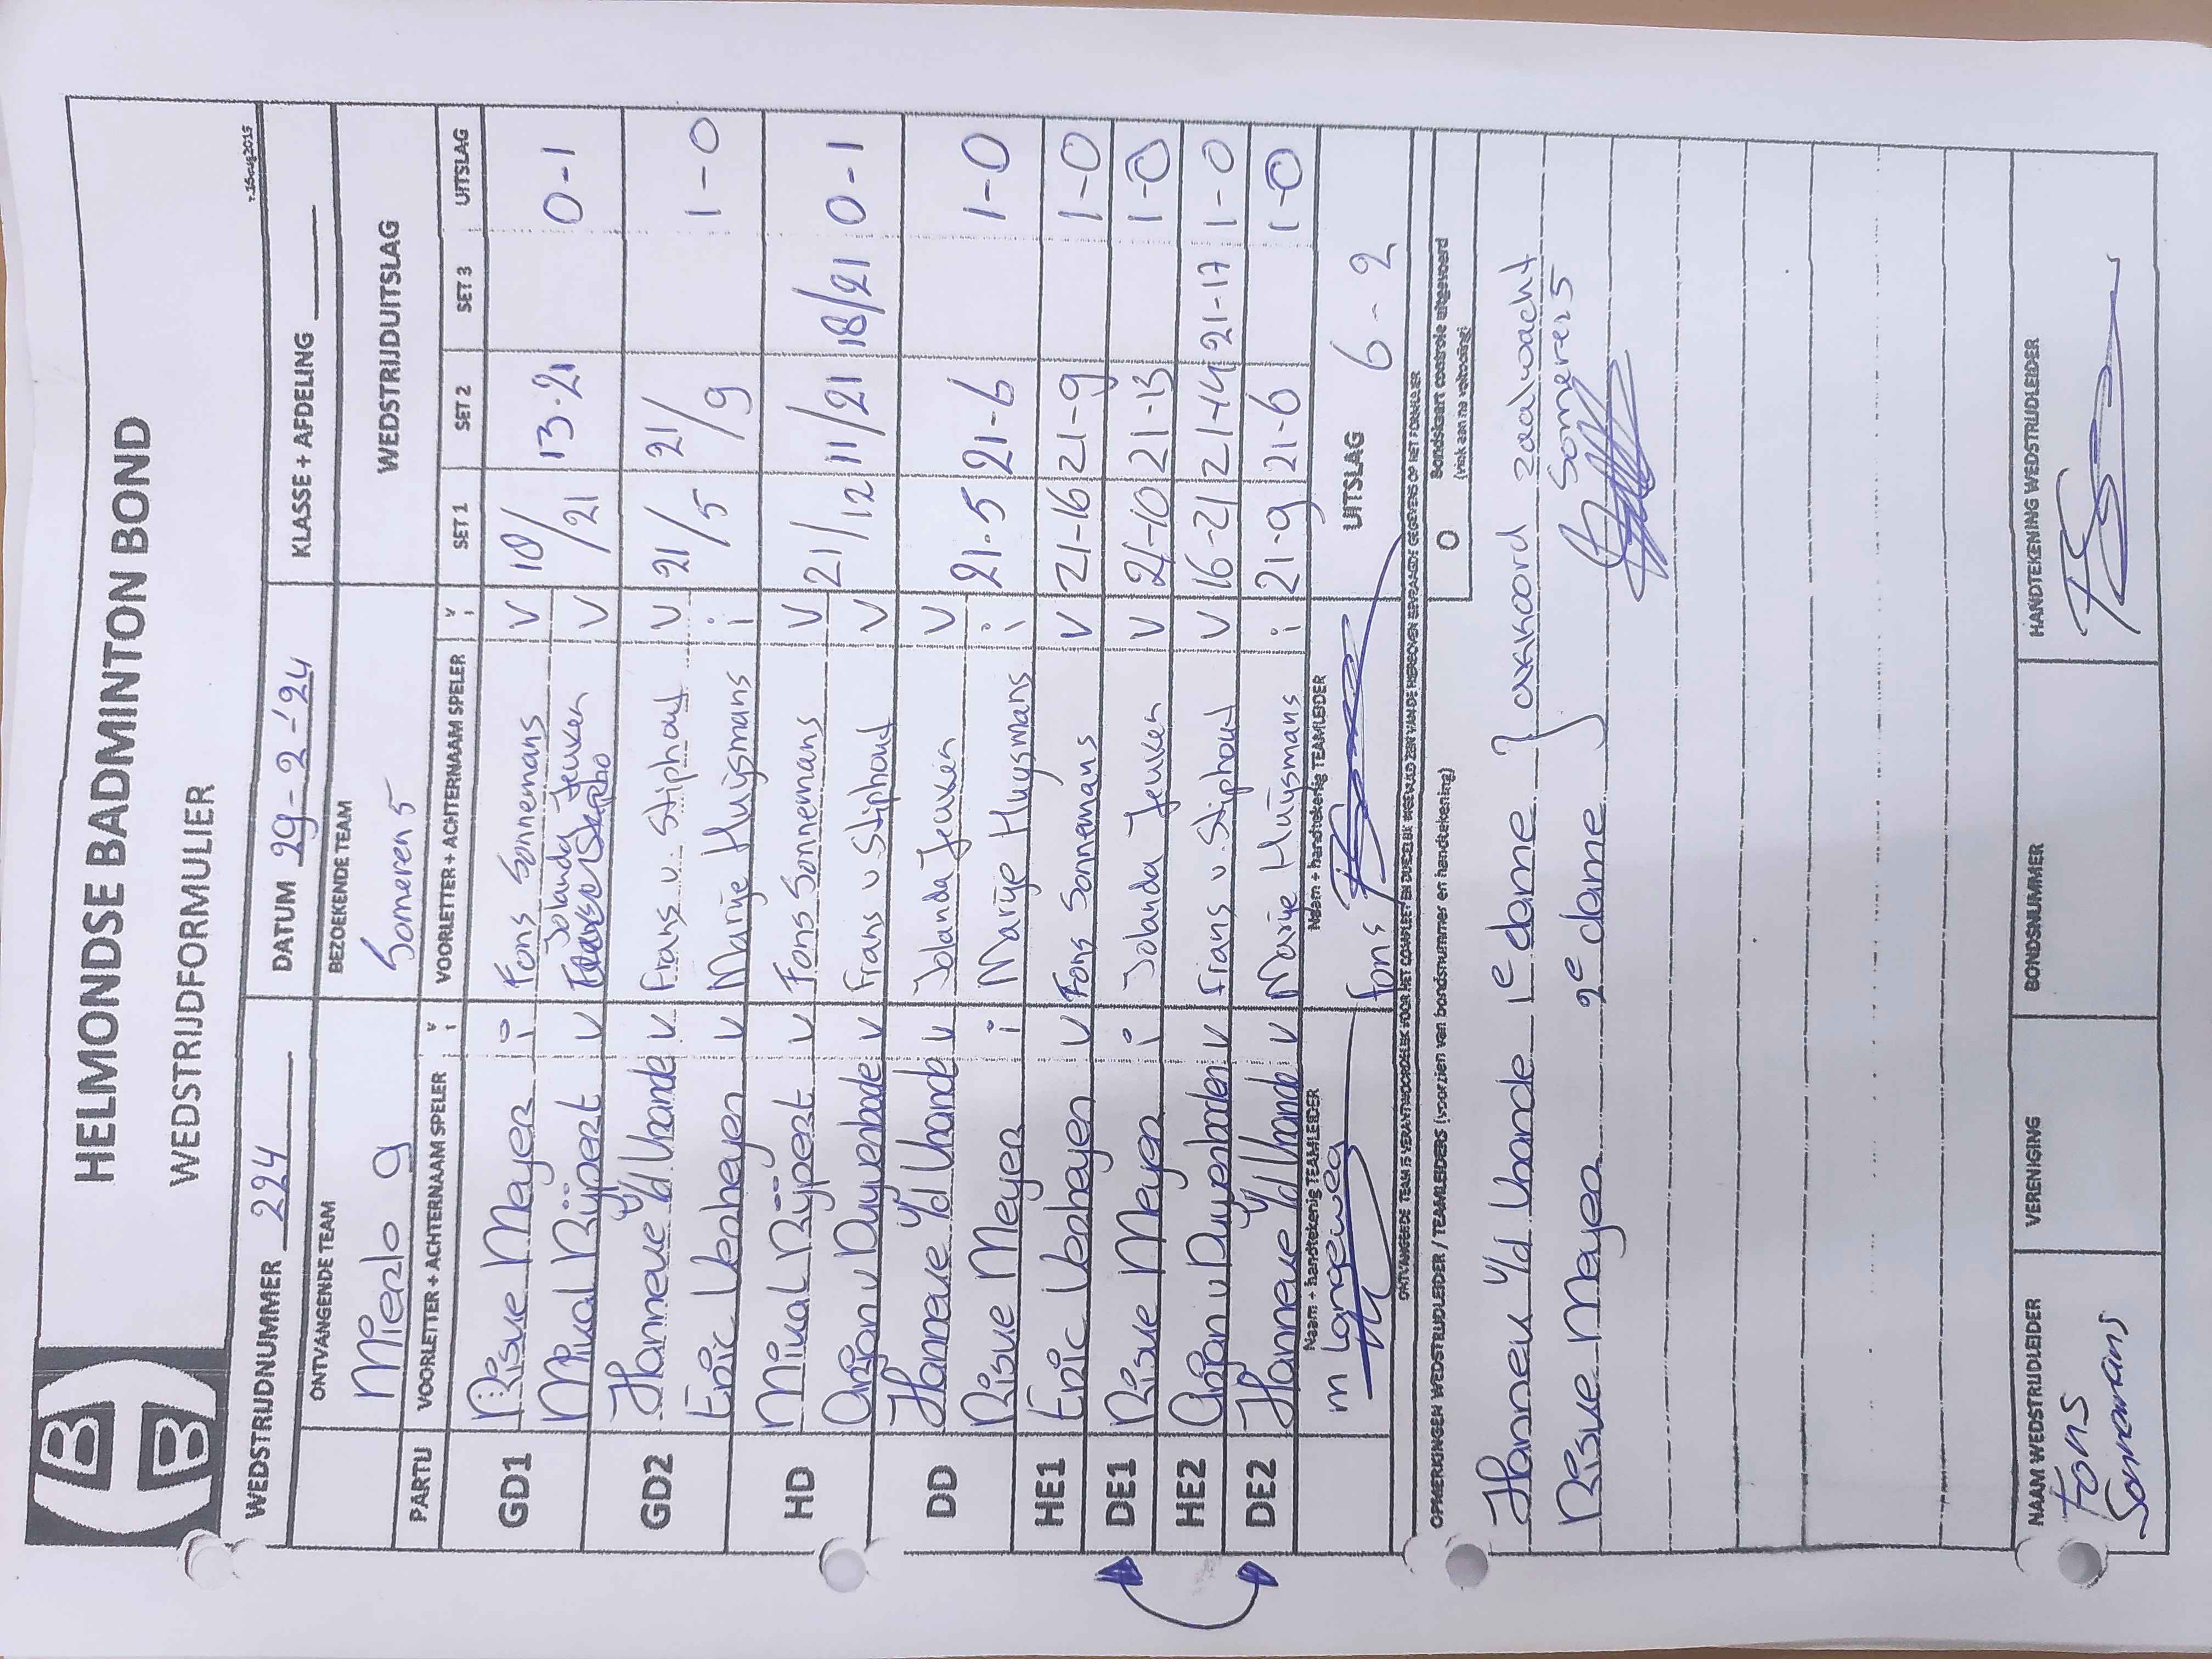 HELMONDSE BADMINTON BOND
WEDSTRIJDFORMULIER
v.15aug2015
WEDSTRIJDNUMMER 224 DATUM 29-2-'24 KLASSE + AFDELING
ONTVANGENDE TEAM BEZOEKENDE TEAM WEDSTRIJDUITSLAG
Mierlo 9 Someren 5
PARTIJ VOORLETTER + ACHTERNAAM SPELER i v VOORLETTER + ACHTERNAAM SPELER i v SET 1 SET 2 SET 3 UITSLAG
GD1 Riskue Meyer i Fons Sonnemans V 10/21 13-21 0-1
Mikal Rijpert V Jolanda Jeuken V
GD2 Hanneke v/d Vrande V Frans v. Stiphout V 21/5 21/9 1-0
Eric Verheyen V Marije Huijsmans i
HD Mikal Rijpert V Fons Sonnemans V 21/12 11/21 18/21 0-1
Arjan v Duyvenbode V Frans v Stiphout V
DD Hanneke v/d Vrande V Jolanda Jeuken V 21-5 21-6 1-0
Riskue Meyer i Marije Huysmans i
HE1 Eric Verheyen V Fons Sonnemans V 21-16 21-9 1-0
DE1 Riskue Meyer i Jolanda Jeuken V 21-10 21-13 1-0
HE2 Arjan v Duyvenboden V Frans v. Stiphout V 16-21 21-14 21-17 1-0
DE2 Hanneke v/d Vrande V Marije Huijsmans i 21-9 21-6 1-0
Naam + handtekenig TEAMLEIDER Naam + handtekenig TEAMLEIDER
m Langeweg Fons UITSLAG 6-2
ONTVANGENDE TEAM IS VERANTWOORDELIJK VOOR HET COMPLEET EN DUIDELIJK INGEVULD ZIJN VAN DE HIERBOVEN GEVRAAGDE GEGEVENS OP HET FORMULIER
OPMERKINGEN WEDSTRIJDLEIDER / TEAMLEIDERS (voorzien van bondsnummer en handtekening) O Bondskaart controle uitgevoerd
(vink aan na voltooing)
Hanneke v/d Vrande 1e dame } akkoord zaalwacht
Riskue Meyer 2e dame Someren 5
NAAM WEDSTRIJDLEIDER VERENIGING BONDSNUMMER HANDTEKENING WEDSTRIJDLEIDER
Fons
Sonnemans